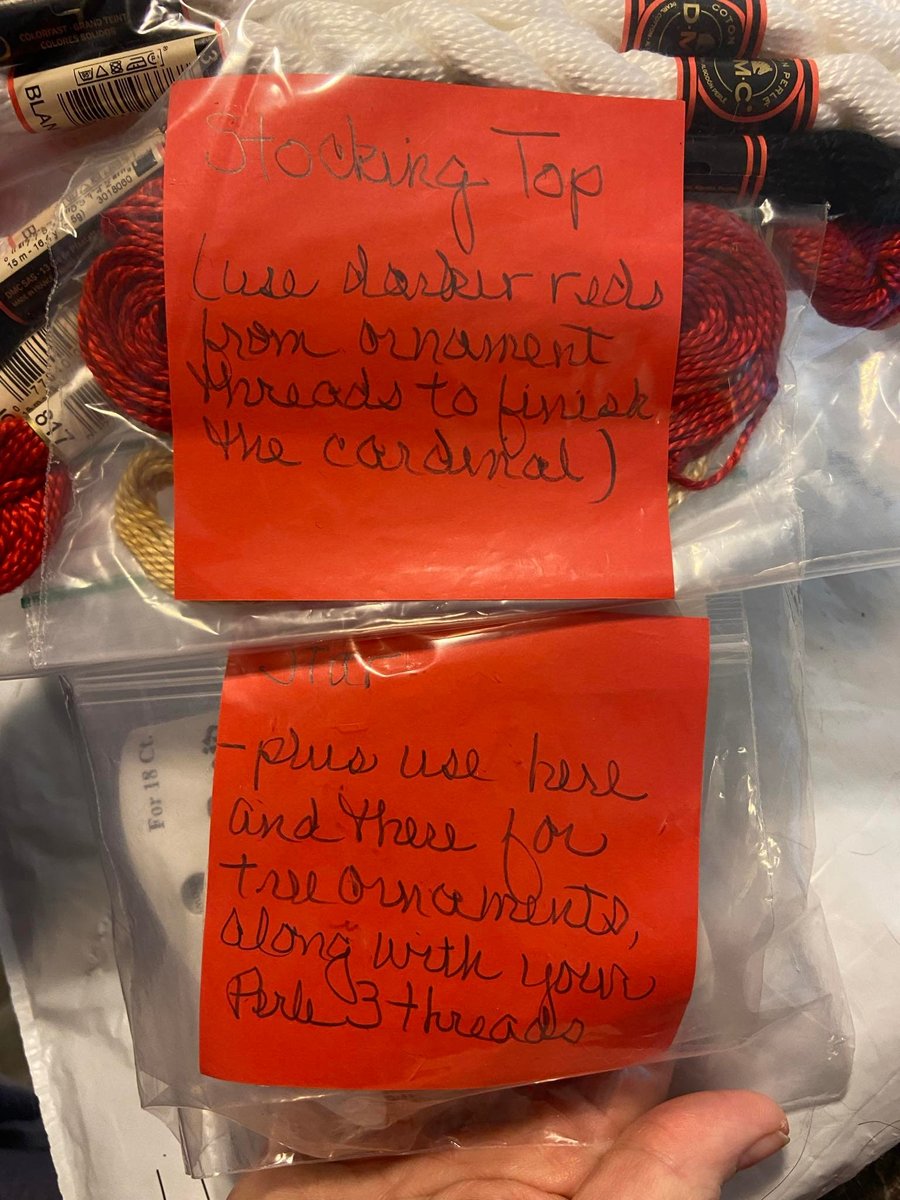 COLORFAST · BRAND TEINT
COLORES SOLIDOS
BLAN
COTON
D·M·C
D.M.C.
3018060
817
Stocking Top
(use darker reds
from ornament
threads to finish
the cardinal)
Star
For 18 Ct.
-plus use here
and there for
tree ornaments,
along with your
Perle 3 threads